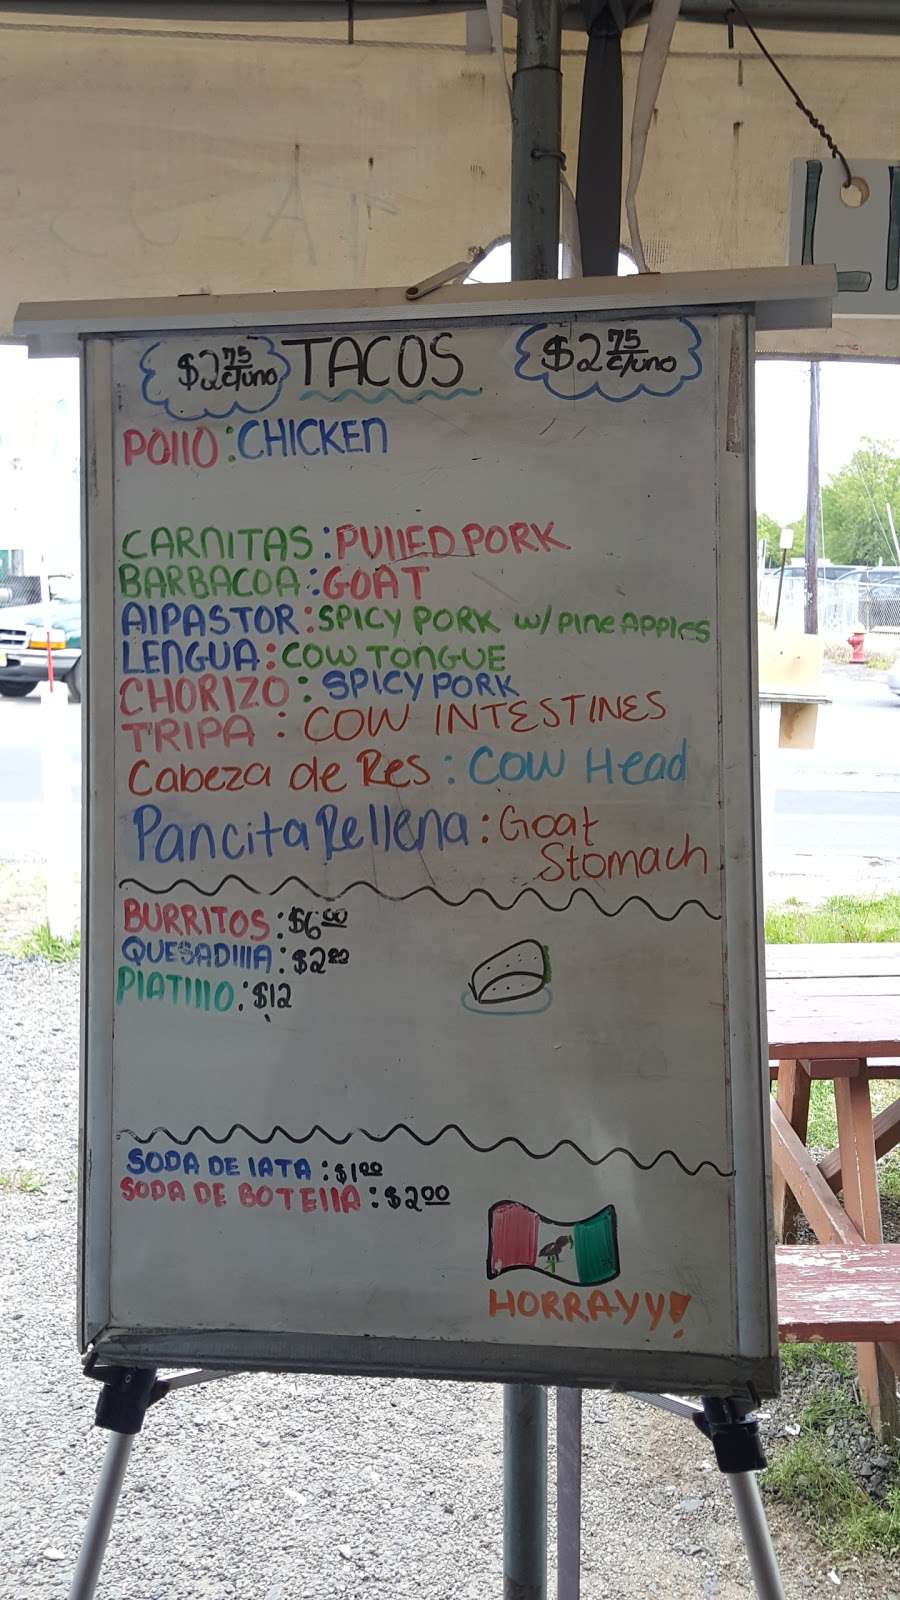 $2.75 c/uno TACOS $2.75 c/uno
POllO: CHICKEN
CARNITAS: PUllED PORK
BARBACOA: GOAT
AlPASTOR: SPICY PORK w/ PINEAPPlES
LENGUA: COW TONGUE
CHORIZO: SPICY PORK
TRIPA: COW INTESTINES
Cabeza de Res: Cow Head
Pancita Rellena: Goat
Stomach.
BURRITOS: $6.00
QUESADIllA: $2.20
PlATIllO: $12
SODA DE lATA: $1.00
SODA DE BOTEllA: $2.00
HORRAYY!